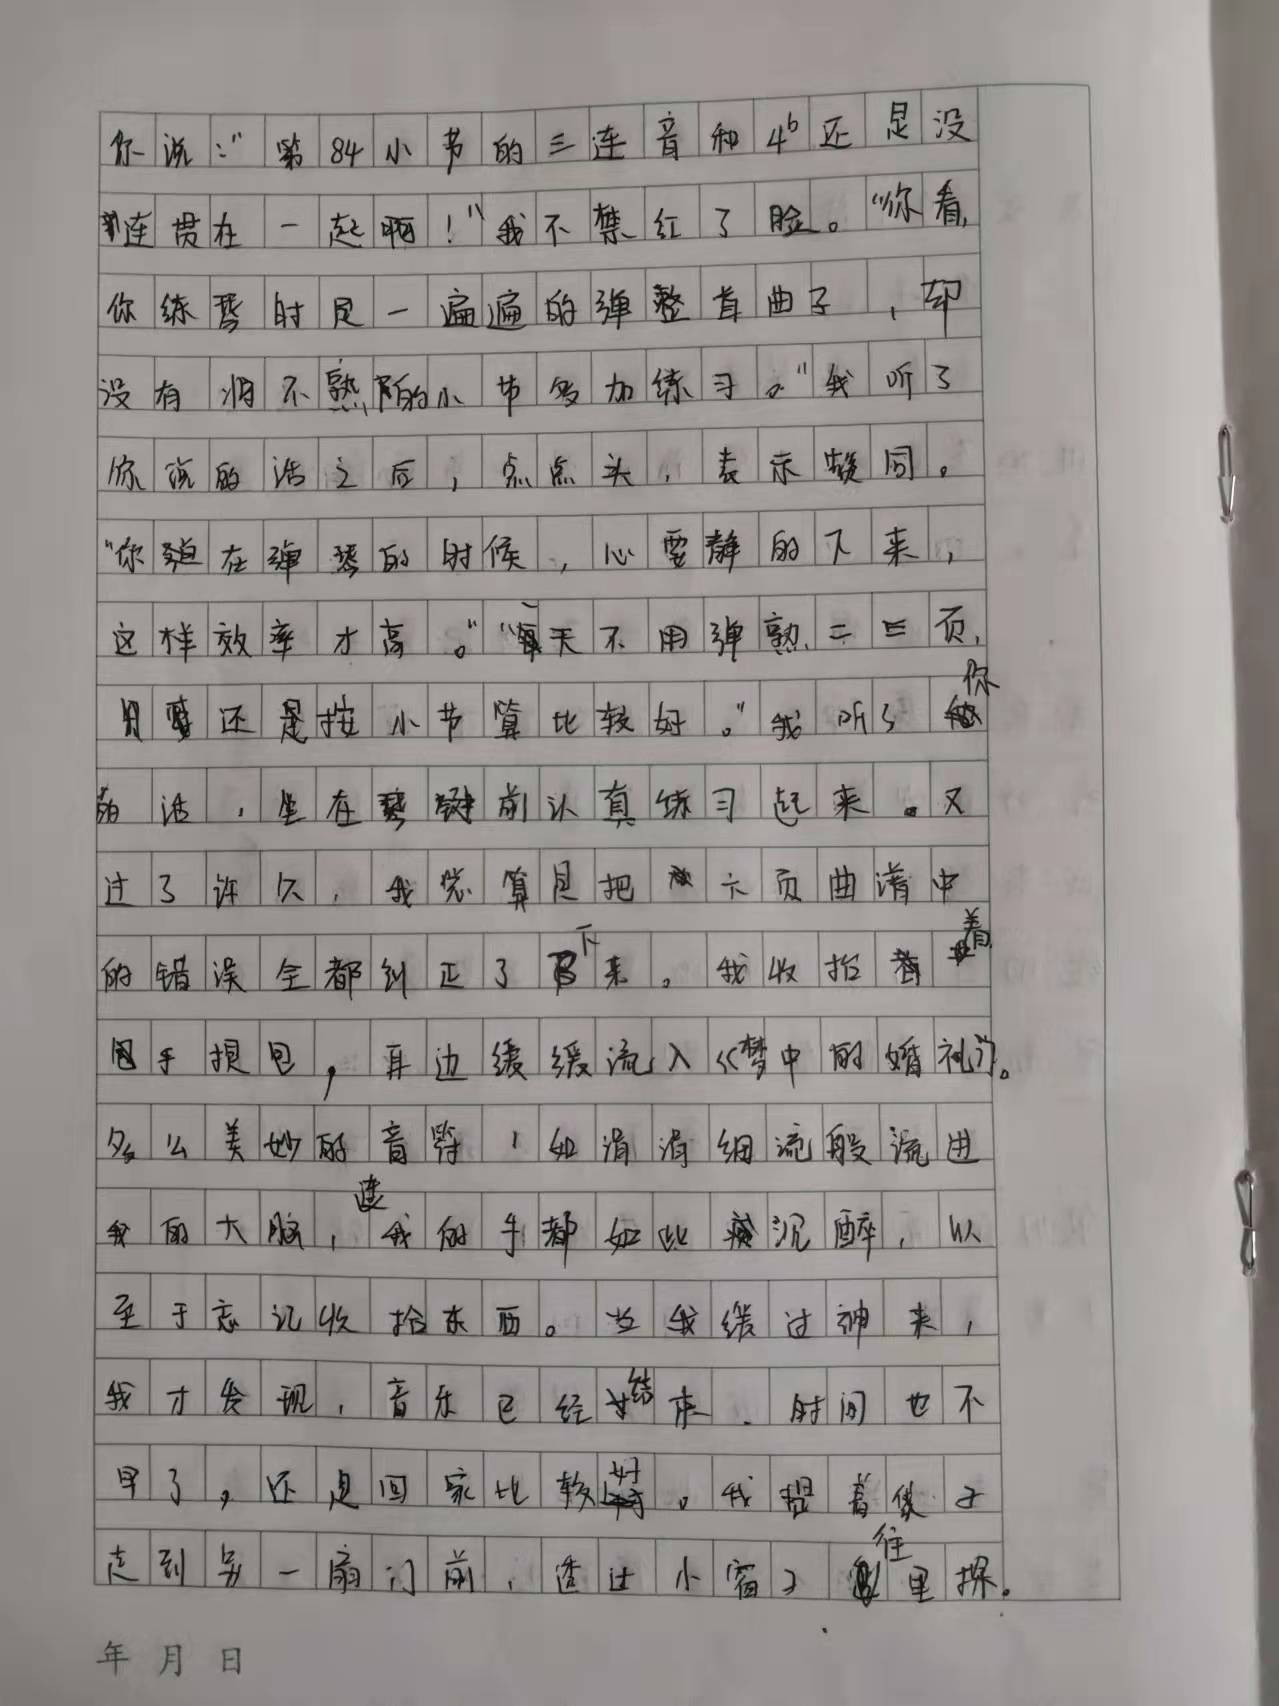 你说：“第84小节的三连音和4b还是没
连贯在一起啊！”我不禁红了脸。“你看，
你练琴时是一遍遍的弹整首曲子，却
没有将不熟的小节多加练习。”我听了
你说的话之后，点点头，表示赞同。
“你在弹琴的时候，心要静的下来，
这样效率才高。”“每天不用弹熟二三页，
还是按小节算比较好。”我听了你
的话，坐在琴键前认真练习起来。又
过了许久，我总算是把六页曲谱中
的错误全都纠正了下来。我收拾着
手提包，耳边缓缓流入《梦中的婚礼》。
多么美妙的音符，如涓涓细流般流进
我的大脑，连我的手都如此沉醉，以
至于忘记收拾东西。当我缓过神来，
我才发现，音乐已经结束，时间也不
早了，还是回家比较好。我提着袋子
走到另一扇门前，透过小窗子往里探。
年 月 日